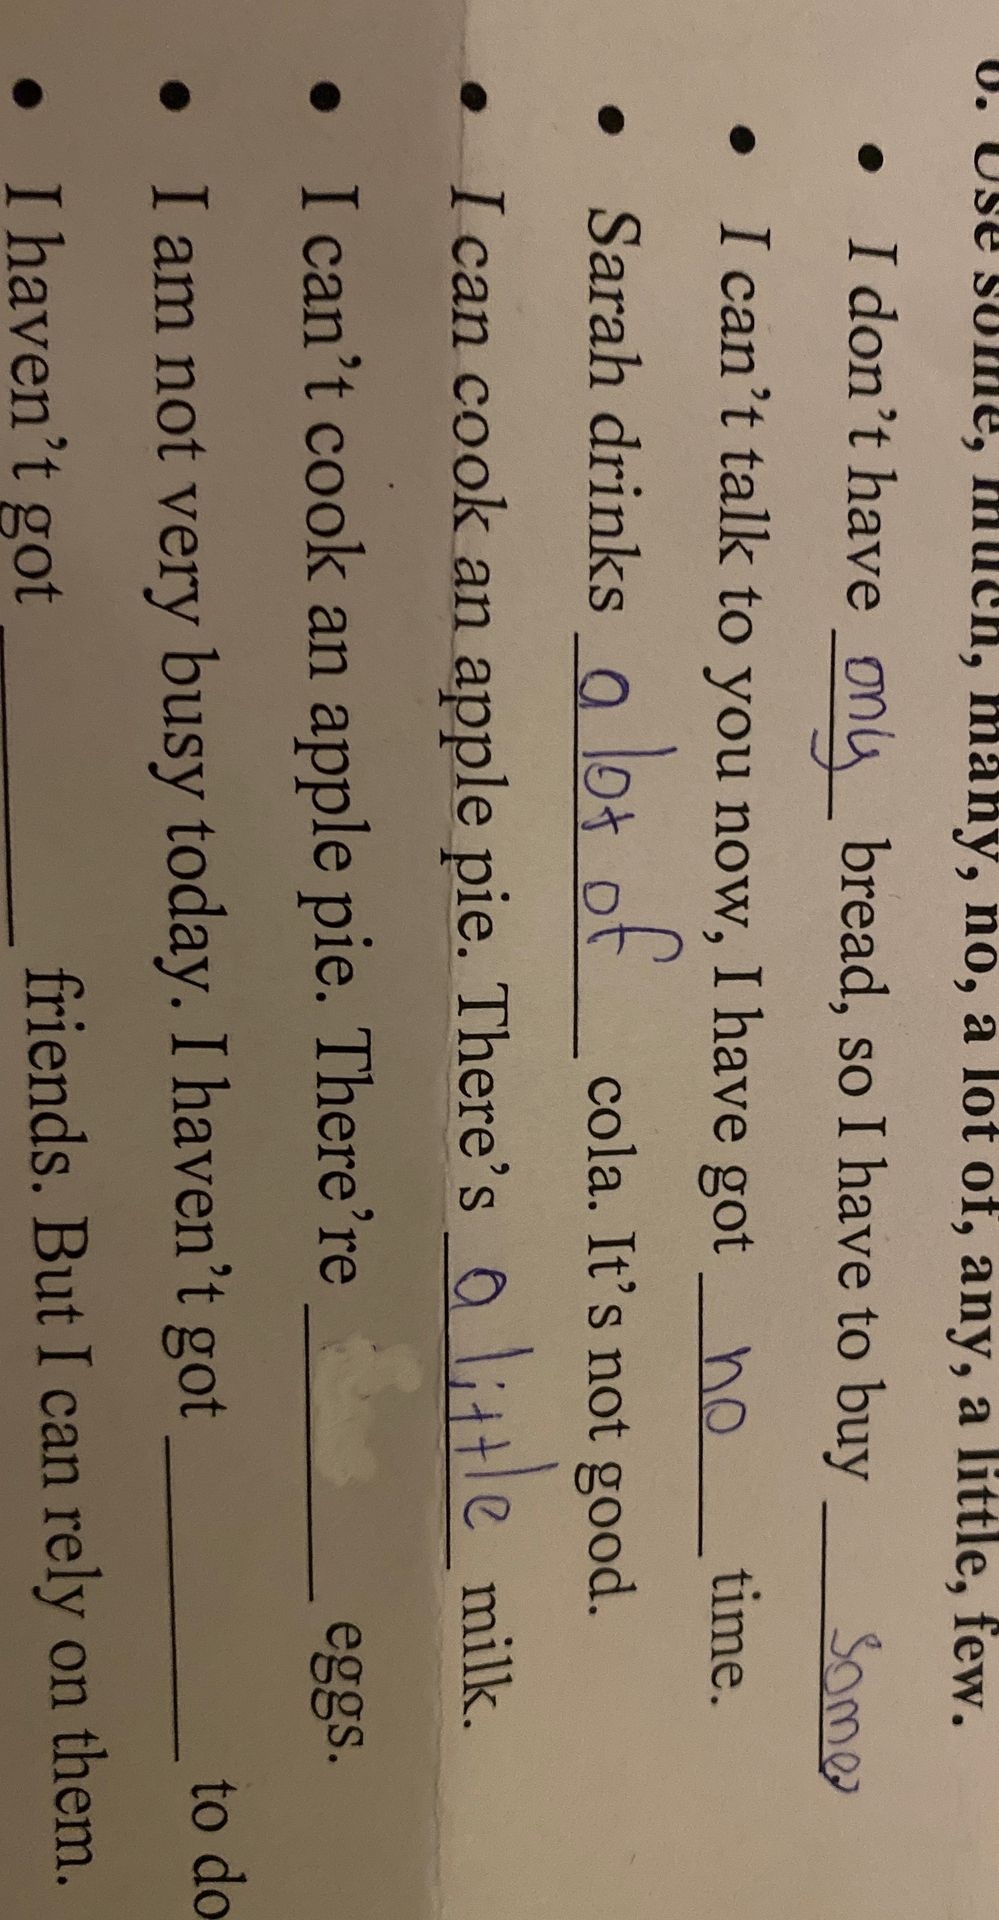 6. Use some, much, many, no, a lot of, any, a little, few.
• I don't have any bread, so I have to buy some
• I can't talk to you now, I have got no time.
• Sarah drinks a lot of cola. It's not good.
• I can cook an apple pie. There's a little milk.
• I can't cook an apple pie. There're ______ eggs.
• I am not very busy today. I haven't got ______ to do
• I haven't got ______ friends. But I can rely on them.